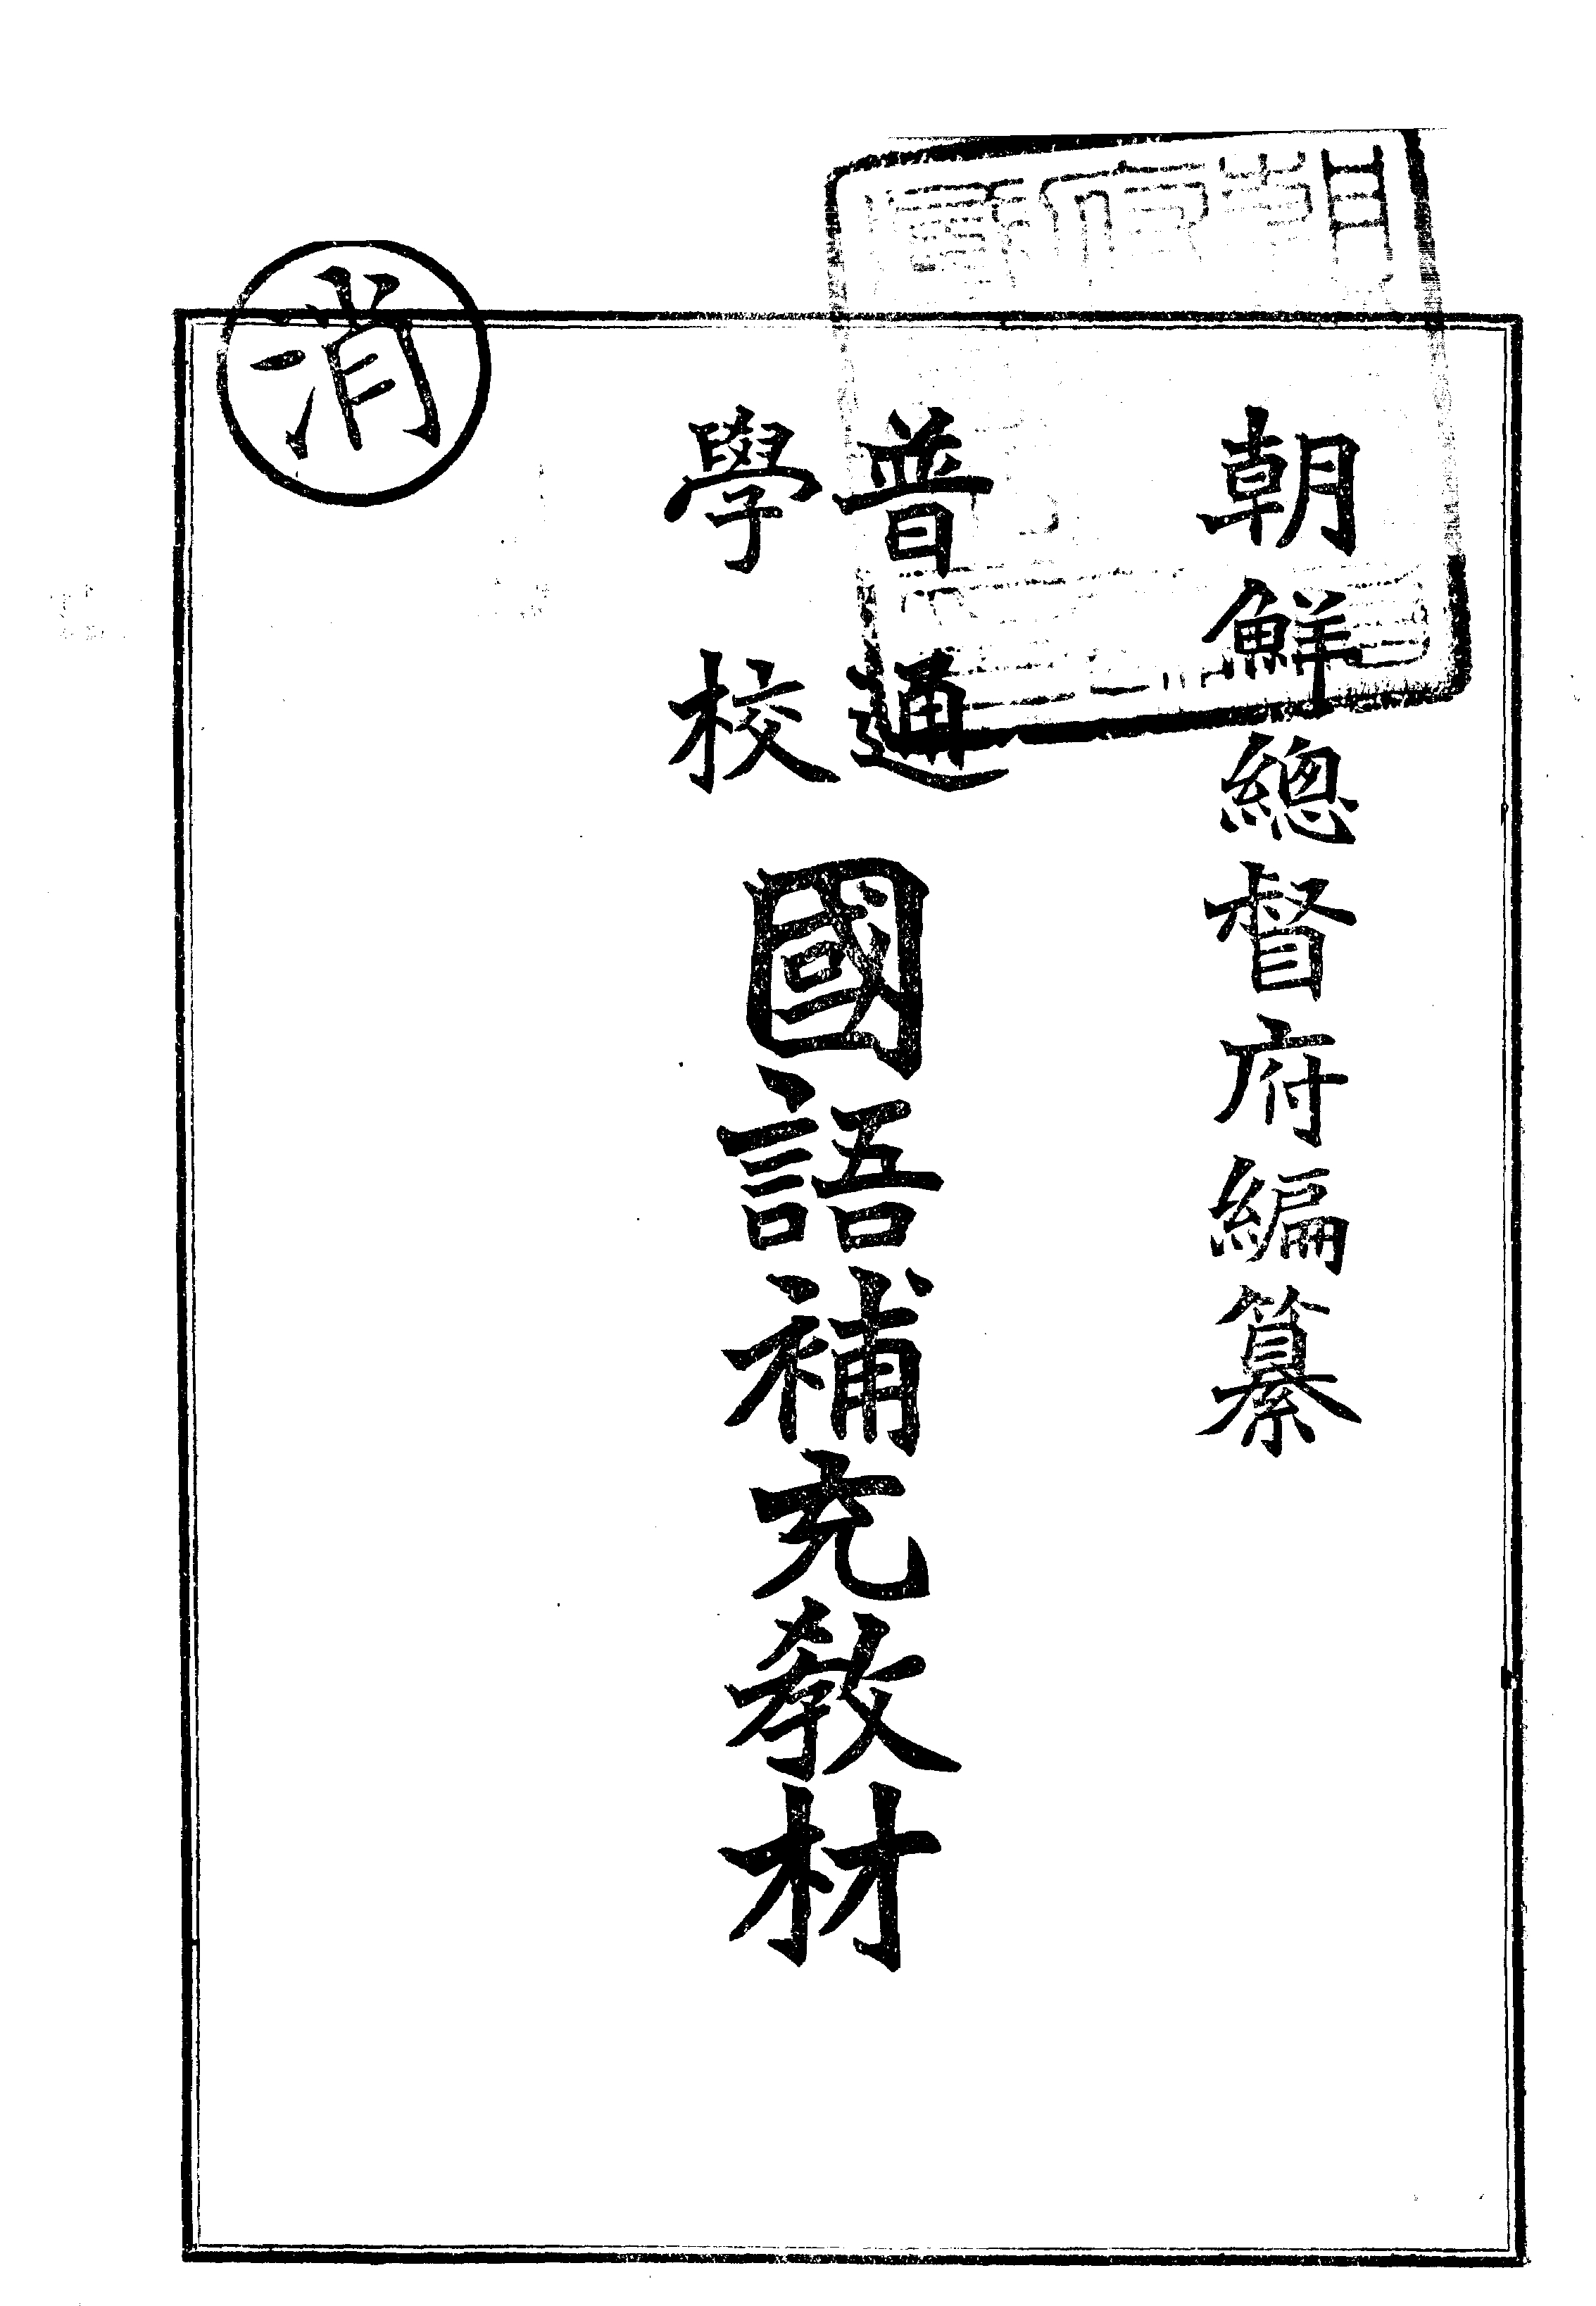 朝鮮總督府編纂
普通
學校
國語補充敎材
消